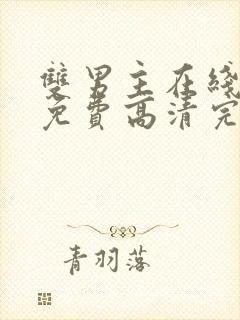 雙男主在綫
免費高清完
青羽落